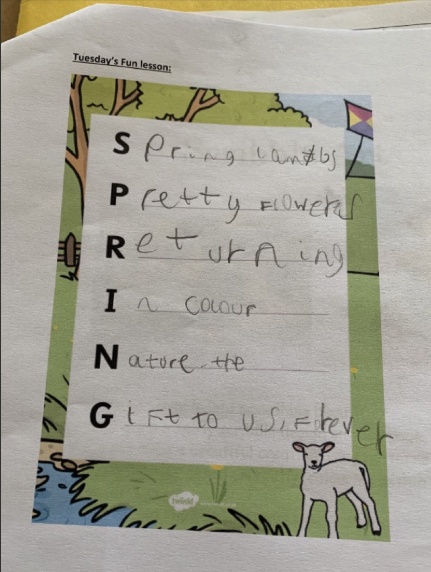 Tuesday's Fun lesson:
Spring lambs
Pretty Flowers
Returning
In colour
Nature the
Gift to us, Forever
twinkl